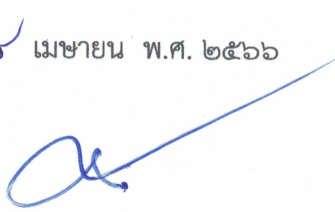 เมษายน พ.ศ. ๒๕๖๖